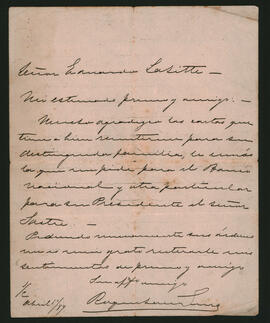 Señor Fernando Lasitte —
Mi estimado primo y amigo: —
Mucho agradezco las cartas que
tuvo a bien remitirme para su
distinguida familia, le
la que me pide para el Banco
nacional y otra particular
para su Presidente el señor
Sastre. —
Pidiendo nuevamente sus órdenes
me es grato reiterarle mis
sentimientos de primo y amigo
Su af. amigo
Abril
Roque Saenz